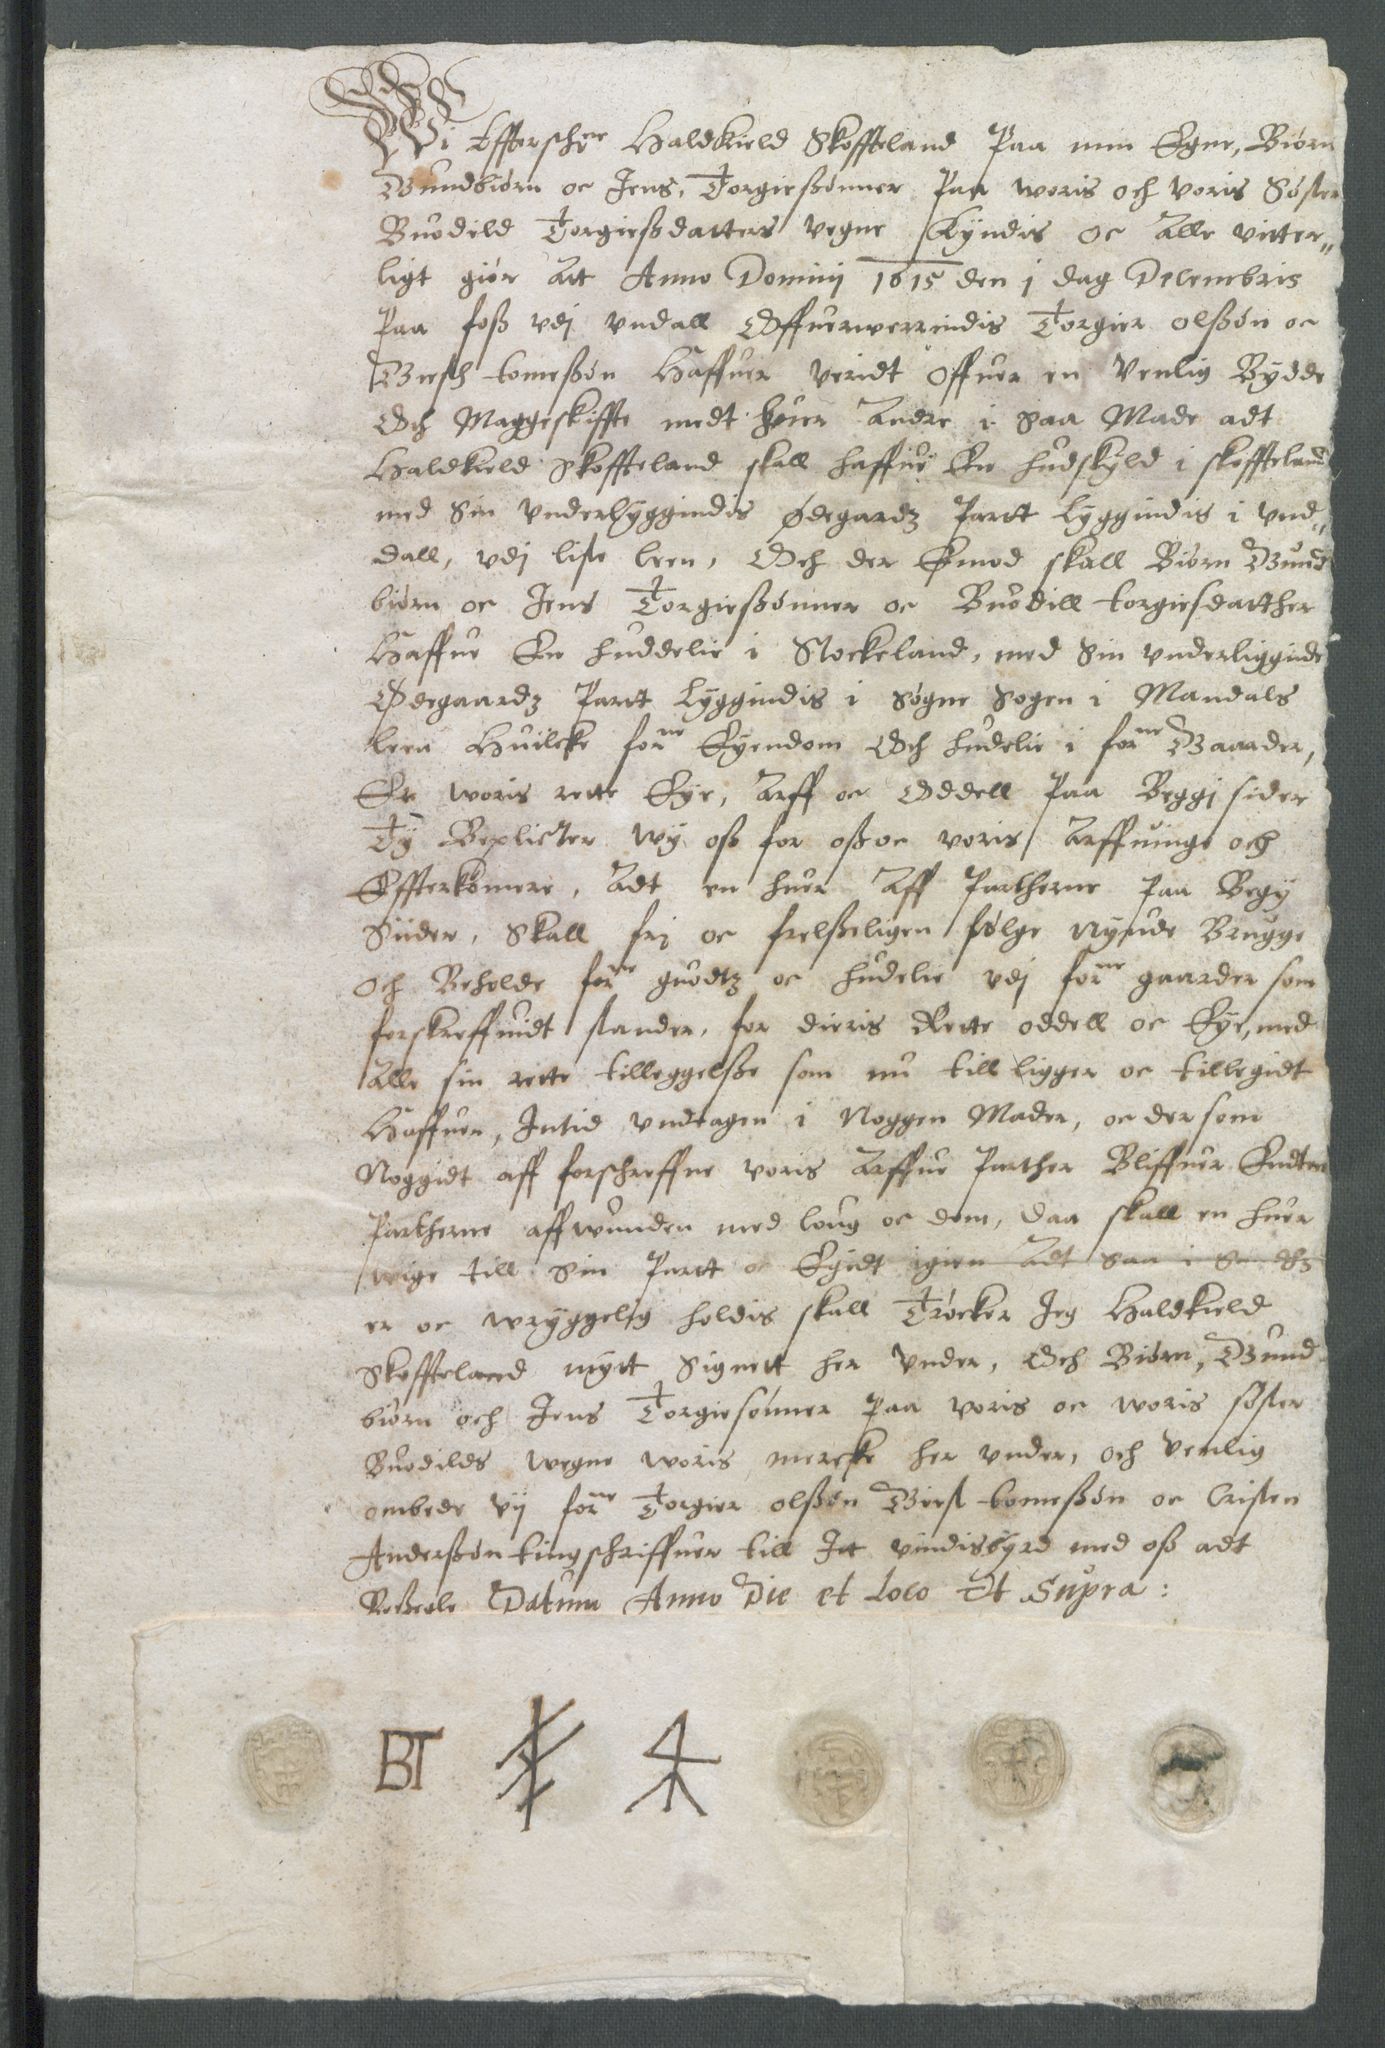 Wi Effterschne Haldkield Skoffteland Paa min Egne, Biørn
Gundbiørn oc Jens, Torgießønner Paa woris och voris Søster
Buodild Torgießdatters vegne Kyndis oc Alle vitter„
ligt giør Att Anno Dominij 1615 den j dag Decembris
Paa foß vdj vndall Offuerwerrindis Torgier olßøn oc
Giest tomeßøn Haffuer veridt Offuer en Venlig Bydde
Och Maggeskiffte medt huer Andre i Saa Made adt
Haldkield Skoffteland skall haffue En hudskyld i skoffteland
med Sin vnderlyggindis Ødegardz Partt Lyggindis i vnd„
dall, vdj liste leen, Och der Emod skall Biørn Gund
biørn oc Jens Torgießønner oc Buodill torgiesdatther
Haffue En huddelie i Stockeland, med Sin vnderligginde
Ødegaardz Partt Lyggindis i Søgne Sogen i Mandals
leen Huilcke forne Eyendom Och hudelie i forne Gaarder,
Er woris rette Eye, Arff oc Oddell Paa Beggj sider
Ty Beplicter wy oß for oß oc voris Arffuinge och
Effterkomere, Adt en huer Aff Partherne Paa Begy
Siider, Skall frj oc frelßeligen følge Nyude Brugge
Och Beholde forne guodtz oc hudelie vdj forne gaarder som
forskreffuidt stander, for dieris Rette oddell oc Eye, med
Alle sin rette tilleggelße som nu till ligger oc tillegidt
Haffuer, Intid vndtagen i Noggen Mader, oc der som
Noggidt aff forschreffne voris Arffue Parther Bliffuer Endten
Partherne affwunden med loug oc dom, daa skall en huer
wige till Sin Partt oc Eyidt igien Adt Saa i
er oc wryggelig holdis skall Trøcker Jeg Haldkield
Skoffteland mytt Signett her vnder, Och Biørn, Gund
biørn och Jens Torgiesønner Paa voris oc woris søster
Buodilds wegne woris mercke her vnder, och venlig
ombede vij forne Torgier olßøn Giest tomeßøn oc Cristen
Anderßøn tingschriffuer till Itt vindisbyrd med oß adt
Beßegle Datum Anno Die et Loco Vt Supra:
BT